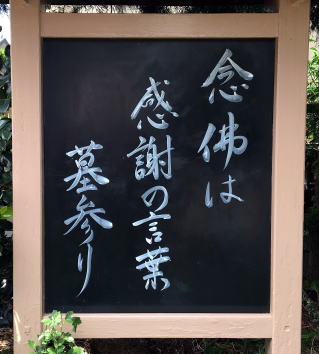 念佛は
感謝の言葉
墓参り